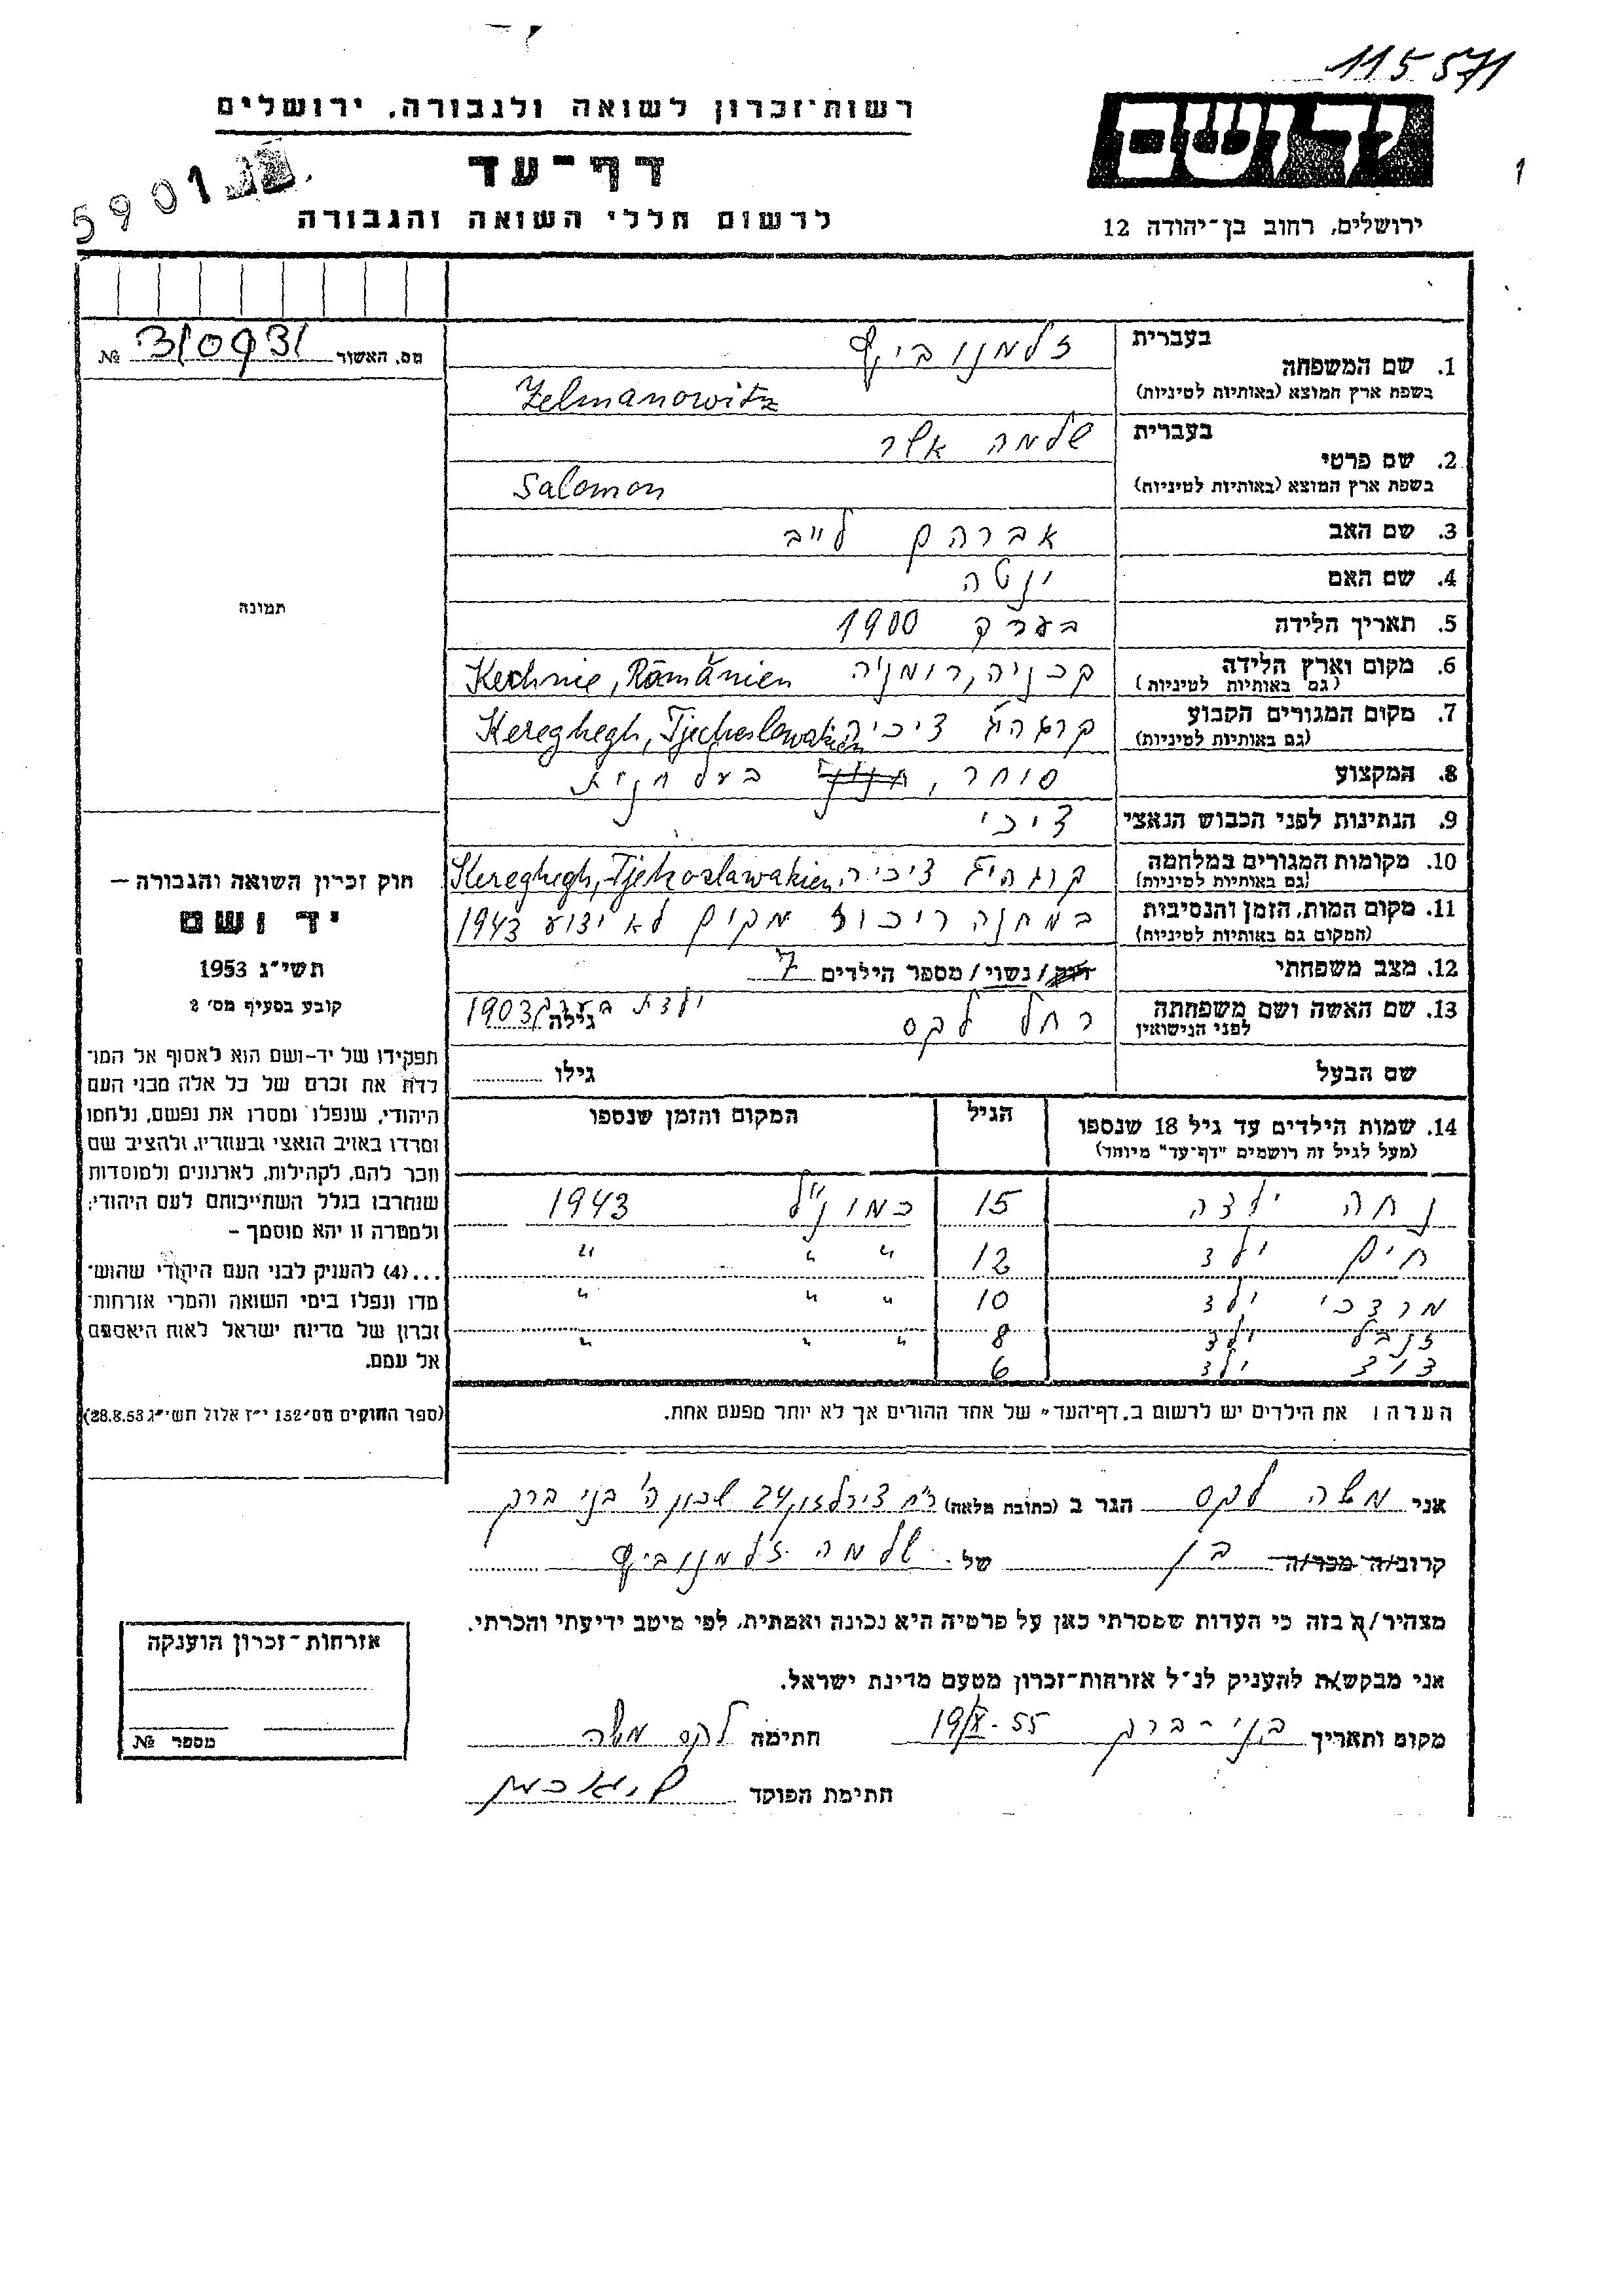 115571
רשות־זכרון לשואה ולגבורה, ירושלים
יד ושם
דף־עד
5901
1
לרשום חללי השואה והגבורה
ירושלים, רחוב בן־יהודה 12
מס. האשור 310931 №
תמונה
חוק זכרון השואה והגבורה —
יד ושם
תשי״ג 1953
קובע בסעיף מס׳ 2
תפקידו של יד-ושם הוא לאסוף אל המו־
לדת את זכרם של כל אלה מבני העם
היהודי, שנפלו ומסרו את נפשם, נלחמו
ומרדו באויב הנאצי ובעוזריו, ולהציב שם
וזכר להם, לקהילות, לארגונים ולמוסדות
שנחרבו בגלל השתייכותם לעם היהודי;
ולמטרה זו יהא מוסמך –
...(4) להעניק לבני העם היהודי שהוש־
מדו ונפלו בימי השואה והמרי אזרחות־
זכרון של מדינת ישראל לאות היאספם
אל עמם.
(ספר החוקים מס׳ 132 י״ז אלול תשי״ג 28.8.53)
1. שם המשפחה
בעברית זלמנוביץ
בשפת ארץ המוצא (באותיות לטיניות) Zelmanowitz
2. שם פרטי
בעברית שלמה אשר
בשפת ארץ המוצא (באותיות לטיניות) Salomon
3. שם האב אברהם לייב
4. שם האם ינטה
5. תאריך הלידה בערך 1900
6. מקום וארץ הלידה (גם באותיות לטיניות) קכניה, רומניה Kechnie, Românien
7. מקום המגורים הקבוע (גם באותיות לטיניות) צ׳כיה Kereghegh, Tjechoslowakien
8. המקצוע סוחר, בעל חנות
9. הנתינות לפני הכבוש הנאצי צ׳כי
10. מקומות המגורים במלחמה (גם באותיות לטיניות) צ׳כיה, Kereghegh, Tjekoslawakien
11. מקום המות, הזמן והנסיבות (המקום גם באותיות לטיניות) במחנה ריכוז מקום לא ידוע 1943
12. מצב משפחתי רווק/נשוי/ מספר הילדים 7
13. שם האשה ושם משפחתה לפני הנישואין רחל לקס גילה ילדת בערך 1903
שם הבעל גילו
14. שמות הילדים עד גיל 18 שנספו הגיל המקום והזמן שנספו
(מעל לגיל זה רושמים "דף־עד" מיוחד)
נחה ילדה 15 כמו נ״ל 1943
חיים ילד 12 " " "
מרדכי ילד 10 " " "
זנביל ילד 8 " " "
דוד ילד 6
הערה: את הילדים יש לרשום ב„דף־העד" של אחד ההורים אך לא יותר מפעם אחת.
אני משה לקס הגר ב (כתובת מלאה) רח׳ 24 שכון ה׳ בני ברק
קרוב/ה מכר/ה בן של שלמה זלמנוביץ
מצהיר/ה בזה כי העדות שמסרתי כאן על פרטיה היא נכונה ואמתית, לפי מיטב ידיעתי והכרתי.
אני מבקש/ת להעניק לנ״ל אזרחות־זכרון מטעם מדינת ישראל.
מקום ותאריך בני-ברק 19/X-55 חתימה לקס משה
חתימת הפוקד
אזרחות־זכרון הוענקה
מספר №